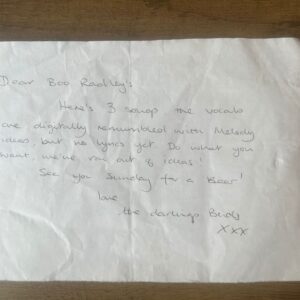 Dear Boo Radley's
Here's 3 songs the vocals
are digitally remumbled with Melody
ideas, but no lyrics yet. Do what you
want, we've ran out of ideas!
See you Sunday for a Beer!
love
the darling Buds
XXX